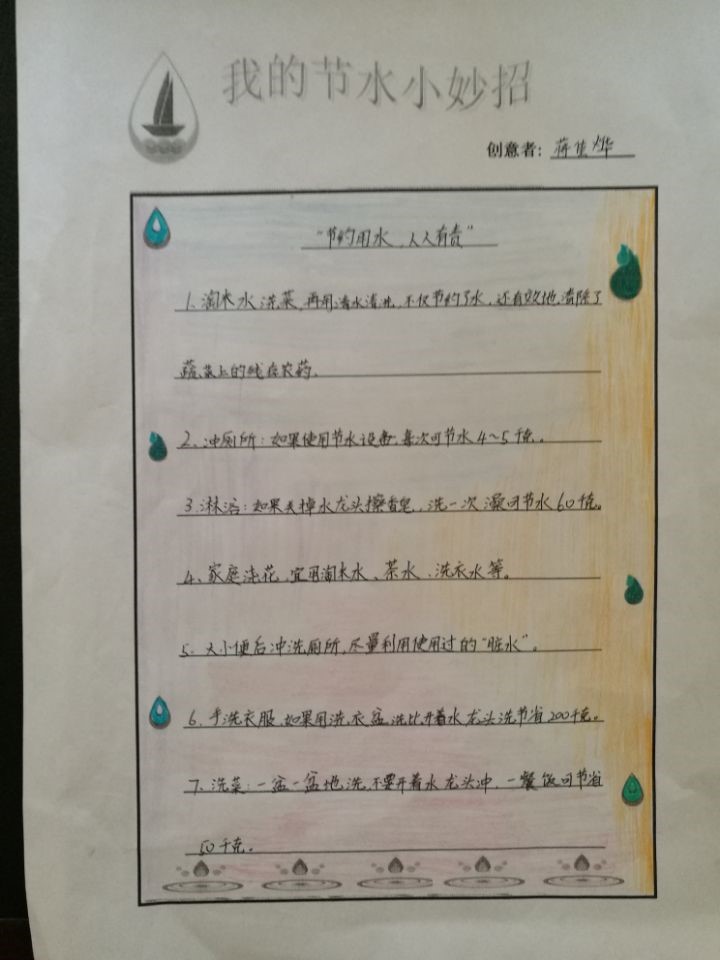 我的节水小妙招
创意者：蒋佳烨
“节约用水，人人有责”
1、淘米水洗菜，再用清水清洗，不仅节约了水，还有效地清除了
蔬菜上的残存农药。
2、冲厕所：如果使用节水设备，每次可节水4～5千克。
3、淋浴：如果关掉水龙头擦香皂，洗一次澡可节水60千克。
4、家庭浇花，宜用淘米水、茶水、洗衣水等。
5、大小便后冲洗厕所，尽量利用使用过的“脏水”。
6、手洗衣服，如果用洗衣盆洗比开着水龙头洗节省200千克。
7、洗菜：一盆一盆地洗，不要开着水龙头冲，一餐饭可节省
50千克。